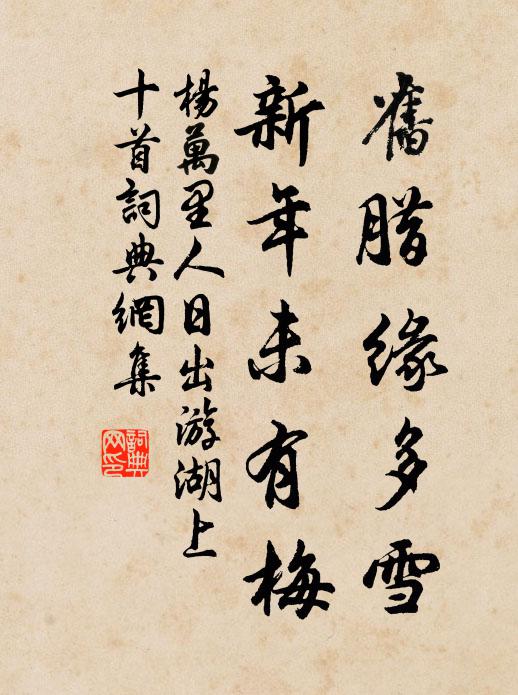 舊腊緣多雪
新年未有梅
楊萬里人日出游湖上
十首詞典網集
詞典
网印